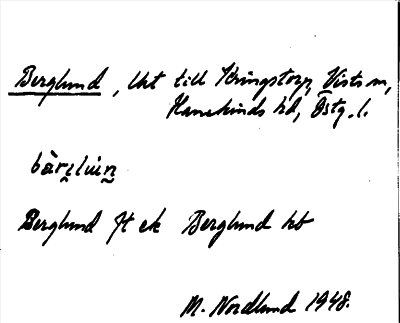 Berglund, lht till Kringstorp, Vists sn,
Hanekinds hd, Östg. l.
bàrʝluiṇ
Berglund ft ek Berglund kb
M. Nordlund 1948.